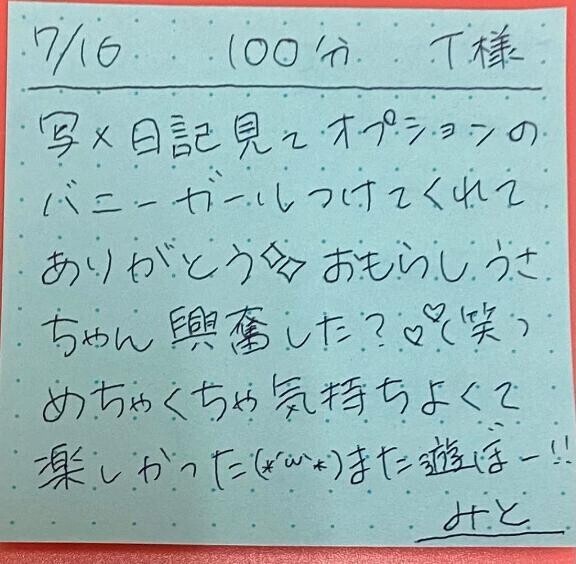 7/16 100分 T様
写メ日記見てオプションの
バニーガールつけてくれて
ありがとう✧✧おもらしうさ
ちゃん興奮した？♡♡(笑)
めちゃくちゃ気持ちよくて
楽しかった(*´ω`*)また遊ぼー!!
みと